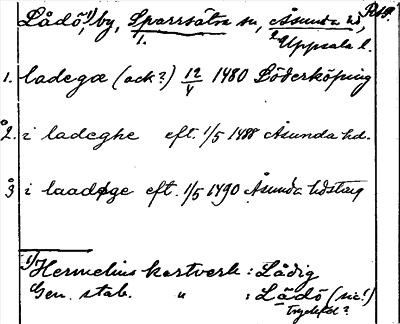 Lådö,¹⁾ by, Sparrsätra sn, Åsunda hd,
1.
Uppsala l.
1. ladegæ (ack?) 12/4 1480 Söderköping
2. i ladeghe eft. 1/5 1488 Åsunda hd.
3 i laadøge eft. 1/5 1490 Åsunda hdsting
1) Hermelins kartverk: Lådig
Gen. stab. " : Lådö (sic!)
tryckfel?